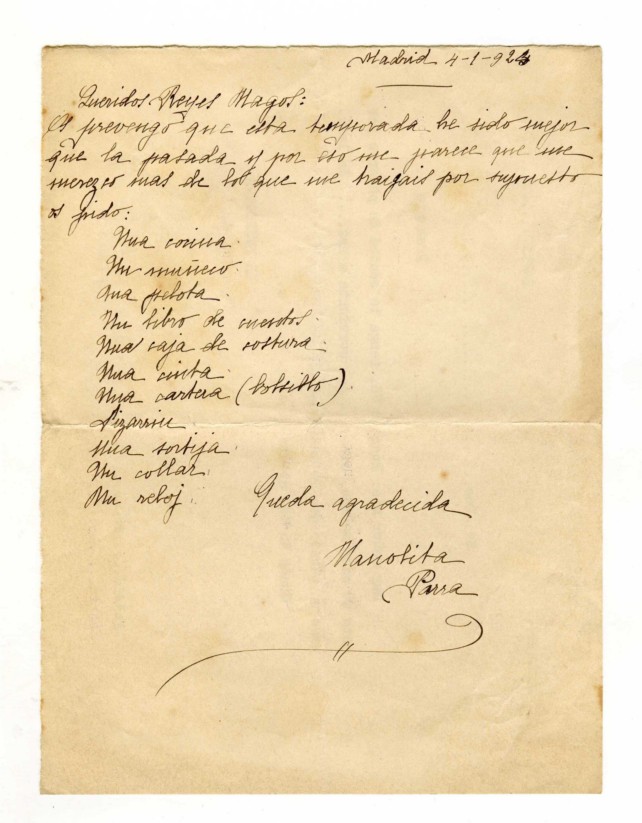 Madrid 4-1-924
Queridos Reyes Magos:
Os prevengo que esta temporada he sido mejor
que la pasada y por eso me parece que me
merezco mas de lo que me traigais por supuesto
os pido:
Una cocina.
Un muñeco.
Una pelota.
Un libro de cuentos.
Una caja de costura.
Una cinta.
Una cartera (bolsillo).
Pizarrin
Una sortija.
Un collar.
Un reloj.
Queda agradecida
Manolita
Parra